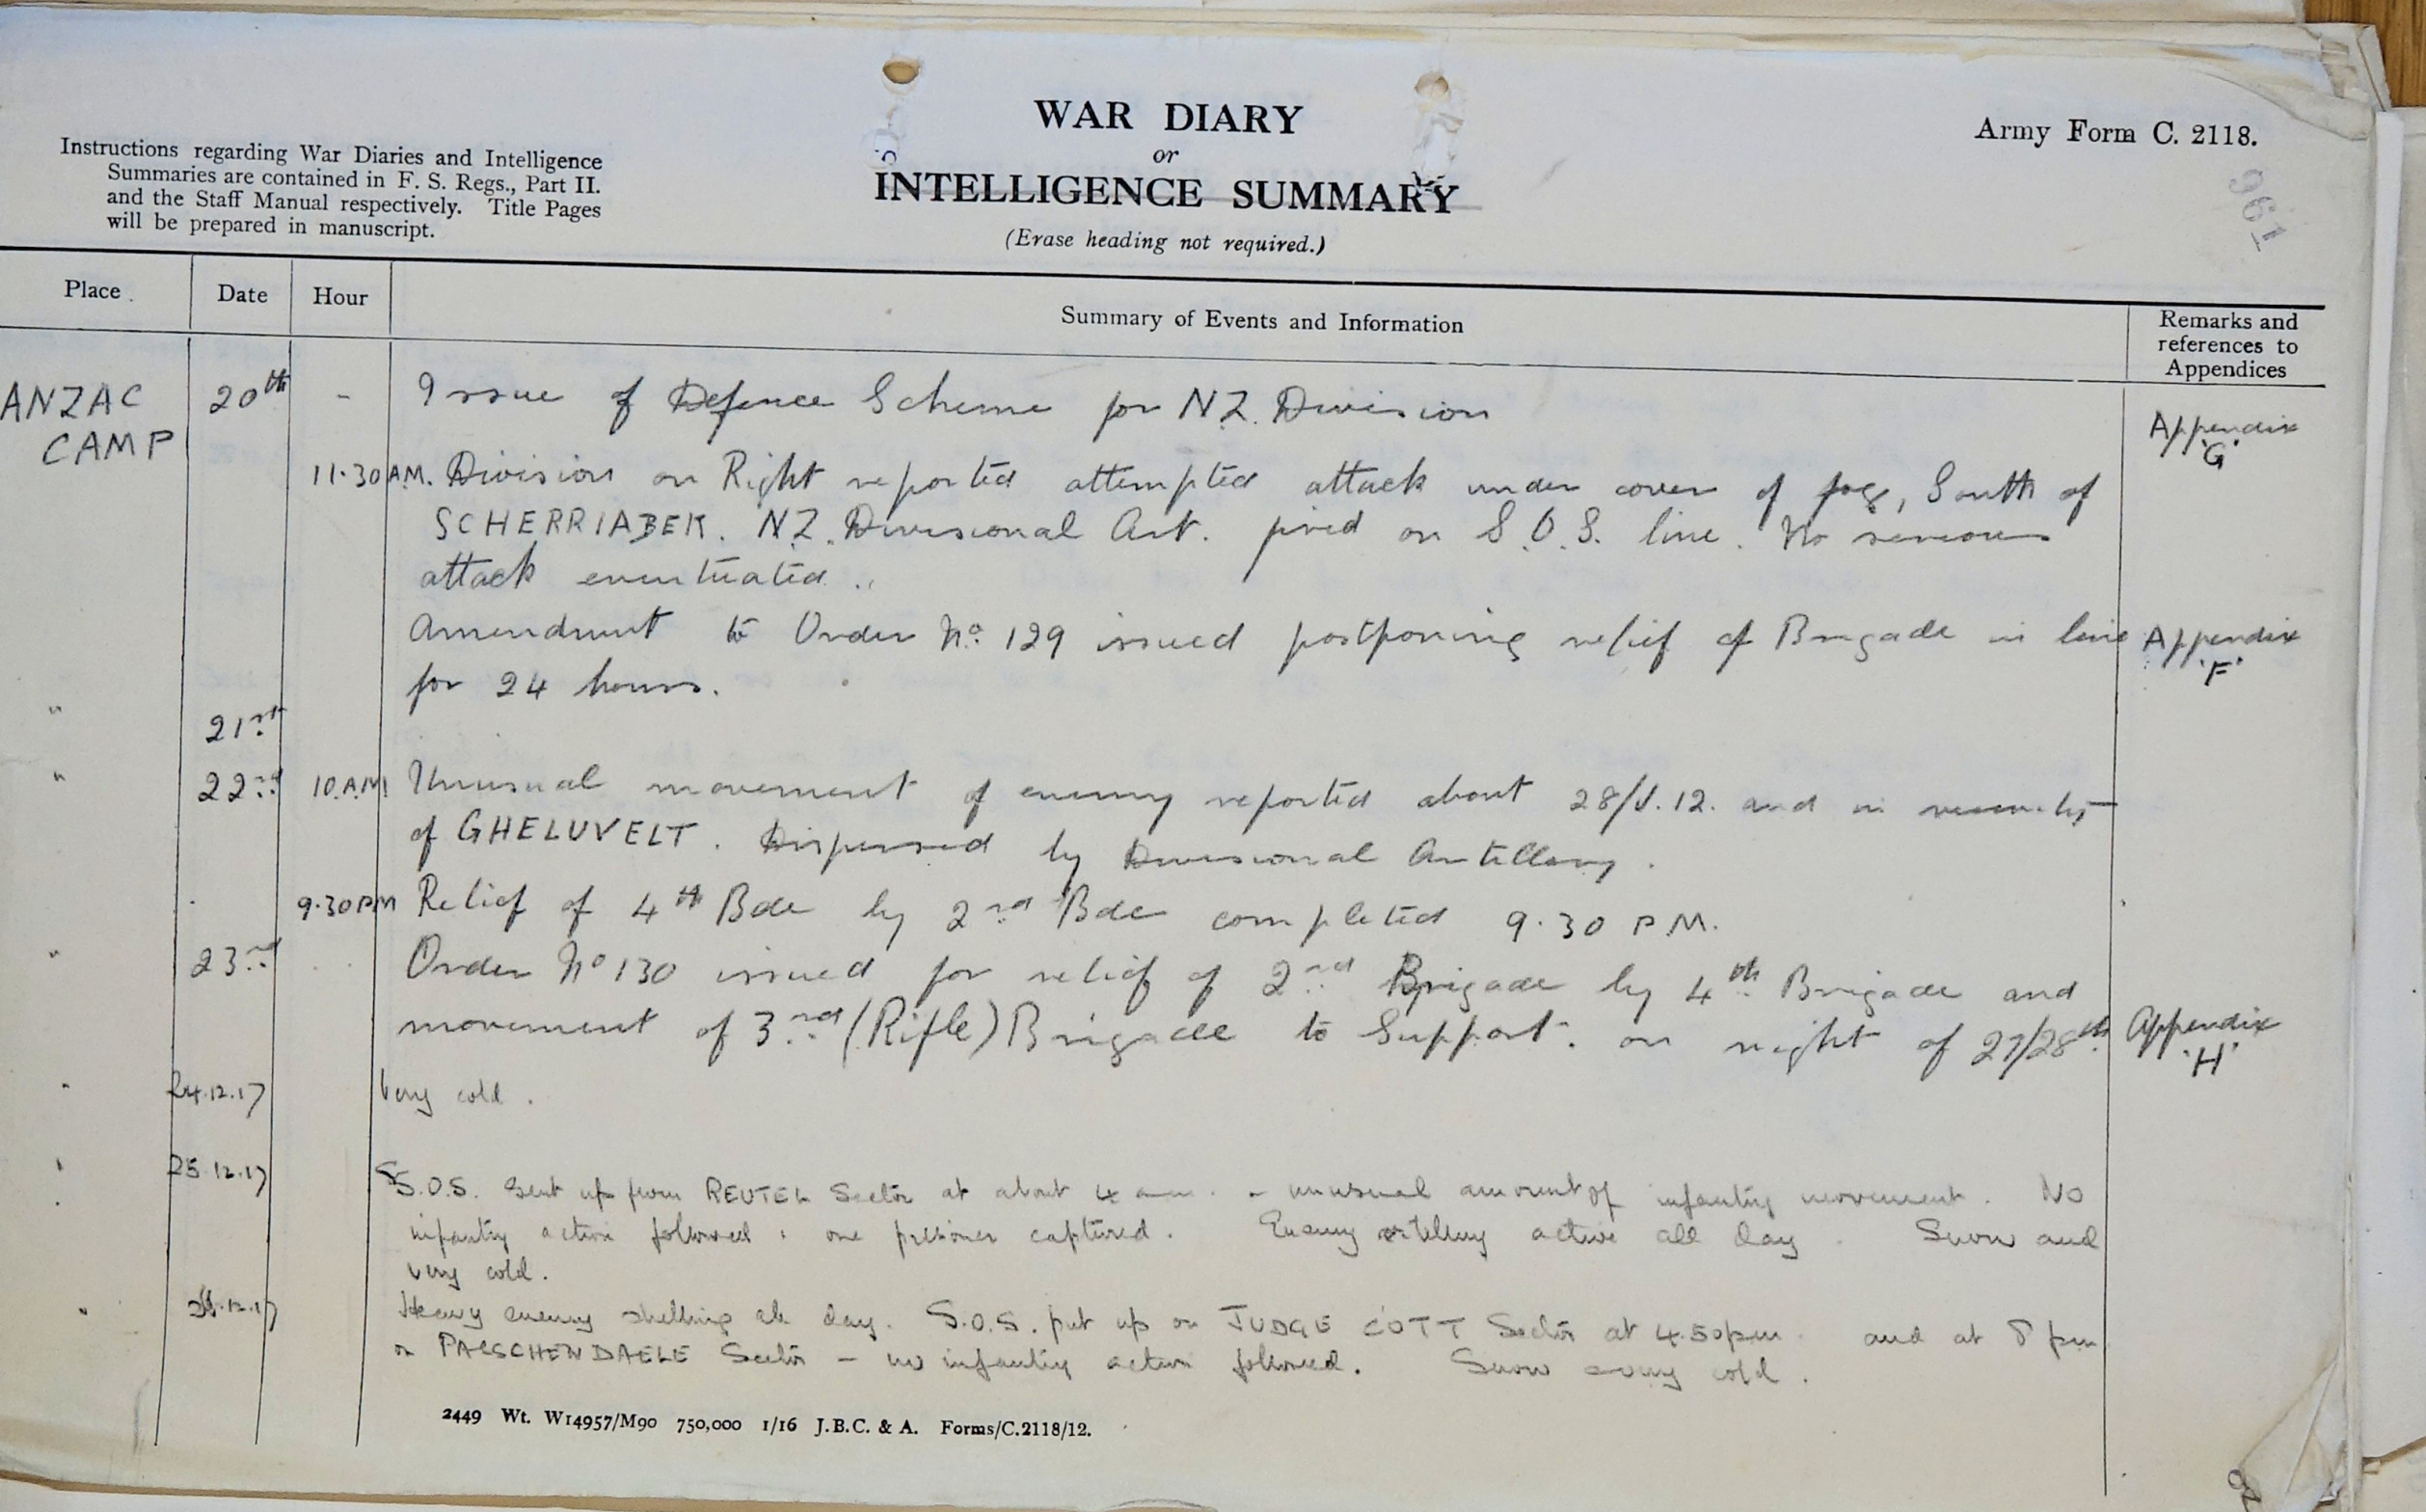 WAR DIARY
or
INTELLIGENCE SUMMARY
(Erase heading not required.)
Army Form C. 2118.
Instructions regarding War Diaries and Intelligence
Summaries are contained in F. S. Regs., Part II.
and the Staff Manual respectively. Title Pages
will be prepared in manuscript.
961
Place Date Hour Summary of Events and Information Remarks and
references to
Appendices
ANZAC
CAMP
20th - Issue of Defence Scheme for N.Z. Division Appendix
"G"
11.30 A.M. Division on Right reported attempted attack under cover of fog, South of
SCHERRIABEK. N.Z. Divisional Art. fired on S.O.S. line. No serious
attack eventuated.
Amendment to Order No. 129 issued postponing relief of Brigade in line Appendix
"F"
for 24 hours.
" 21st
" 22nd 10 A.M. Unusual movement of enemy reported about 28/J.12. and in vicinity
of GHELUVELT. Dispersed by Divisional Artillery.
9.30 PM Relief of 4th Bde by 2nd Bde completed 9.30 P.M.
" 23rd Order No 130 issued for relief of 2nd Brigade by 4th Brigade and
movement of 3rd (Rifle) Brigade to Support. on night of 27/28th Appendix
"H"
" 24.12.17 Very cold.
" 25.12.17 S.O.S. sent up from REUTEL Sector at about 4 am. - unusual amount of infantry movement. No
infantry action followed: one prisoner captured. Enemy artillery active all day. Snow and
very cold.
" .12.17 Heavy enemy shelling all day. S.O.S. put up on JUDGE COTT Sector at 4.50pm. and at 8 pm
on PASSCHENDAELE Sector - no infantry action followed. Snow & very cold.
2449 Wt. W14957/M90 750,000 1/16 J.B.C. & A. Forms/C.2118/12.